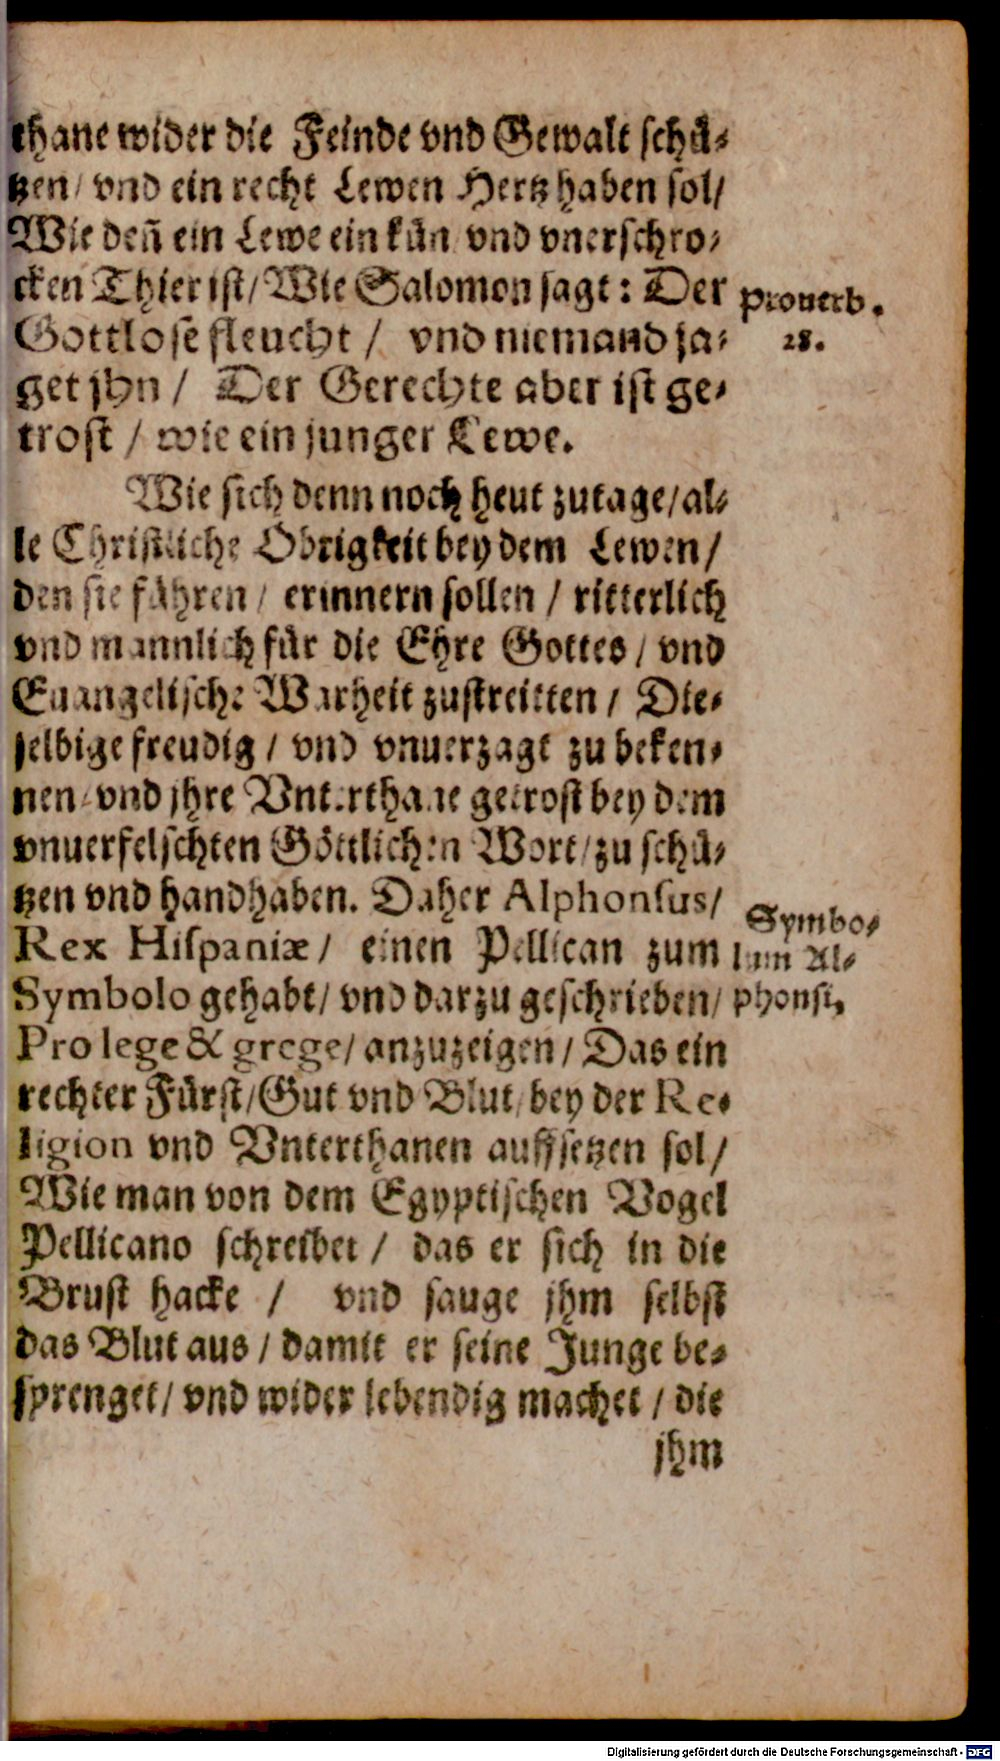 thane wider die Feinde vnd Gewalt schü⸗
tzen/ vnd ein recht Lewen Hertz haben sol/
Wie deñ ein Lewe ein kün vnd vnerschro⸗
cken Thier ist/ Wie Salomon sagt: Der
Gottlose fleucht / vnd niemand ja⸗
get jhn / Der Gerechte aber ist ge⸗
trost / wie ein junger Lewe.
Prouerb.
28.
Wie sich denn noch heut zutage/ al⸗
le Christliche Obrigkeit bey dem Lewen/
den sie führen / erinnern sollen / ritterlich
vnd mannlich für die Ehre Gottes / vnd
Euangelische Warheit zustreitten / Die⸗
selbige freudig / vnd vnuerzagt zu beken⸗
nen/ vnd jhre Vnterthane getrost bey dem
vnuerfelschten Göttlichen Wort/ zu schü⸗
tzen vnd handhaben. Daher Alphonsus/
Rex Hispaniæ/ einen Pellican zum
Symbolo gehabt/ vnd darzu geschrieben/
Pro lege & grege/ anzuzeigen / Das ein
rechter Fürst/ Gut vnd Blut/ bey der Re⸗
ligion vnd Vnterthanen auffsetzen sol/
Wie man von dem Egyptischen Vogel
Pellicano schreibet / das er sich in die
Brust hacke / vnd sauge jhm selbst
das Blut aus / damit er seine Junge be⸗
sprenget/ vnd wider lebendig machet / die
jhm
Symbo⸗
lum Al⸗
phonsi,
Digitalisierung gefördert durch die Deutsche Forschungsgemeinschaft - DFG